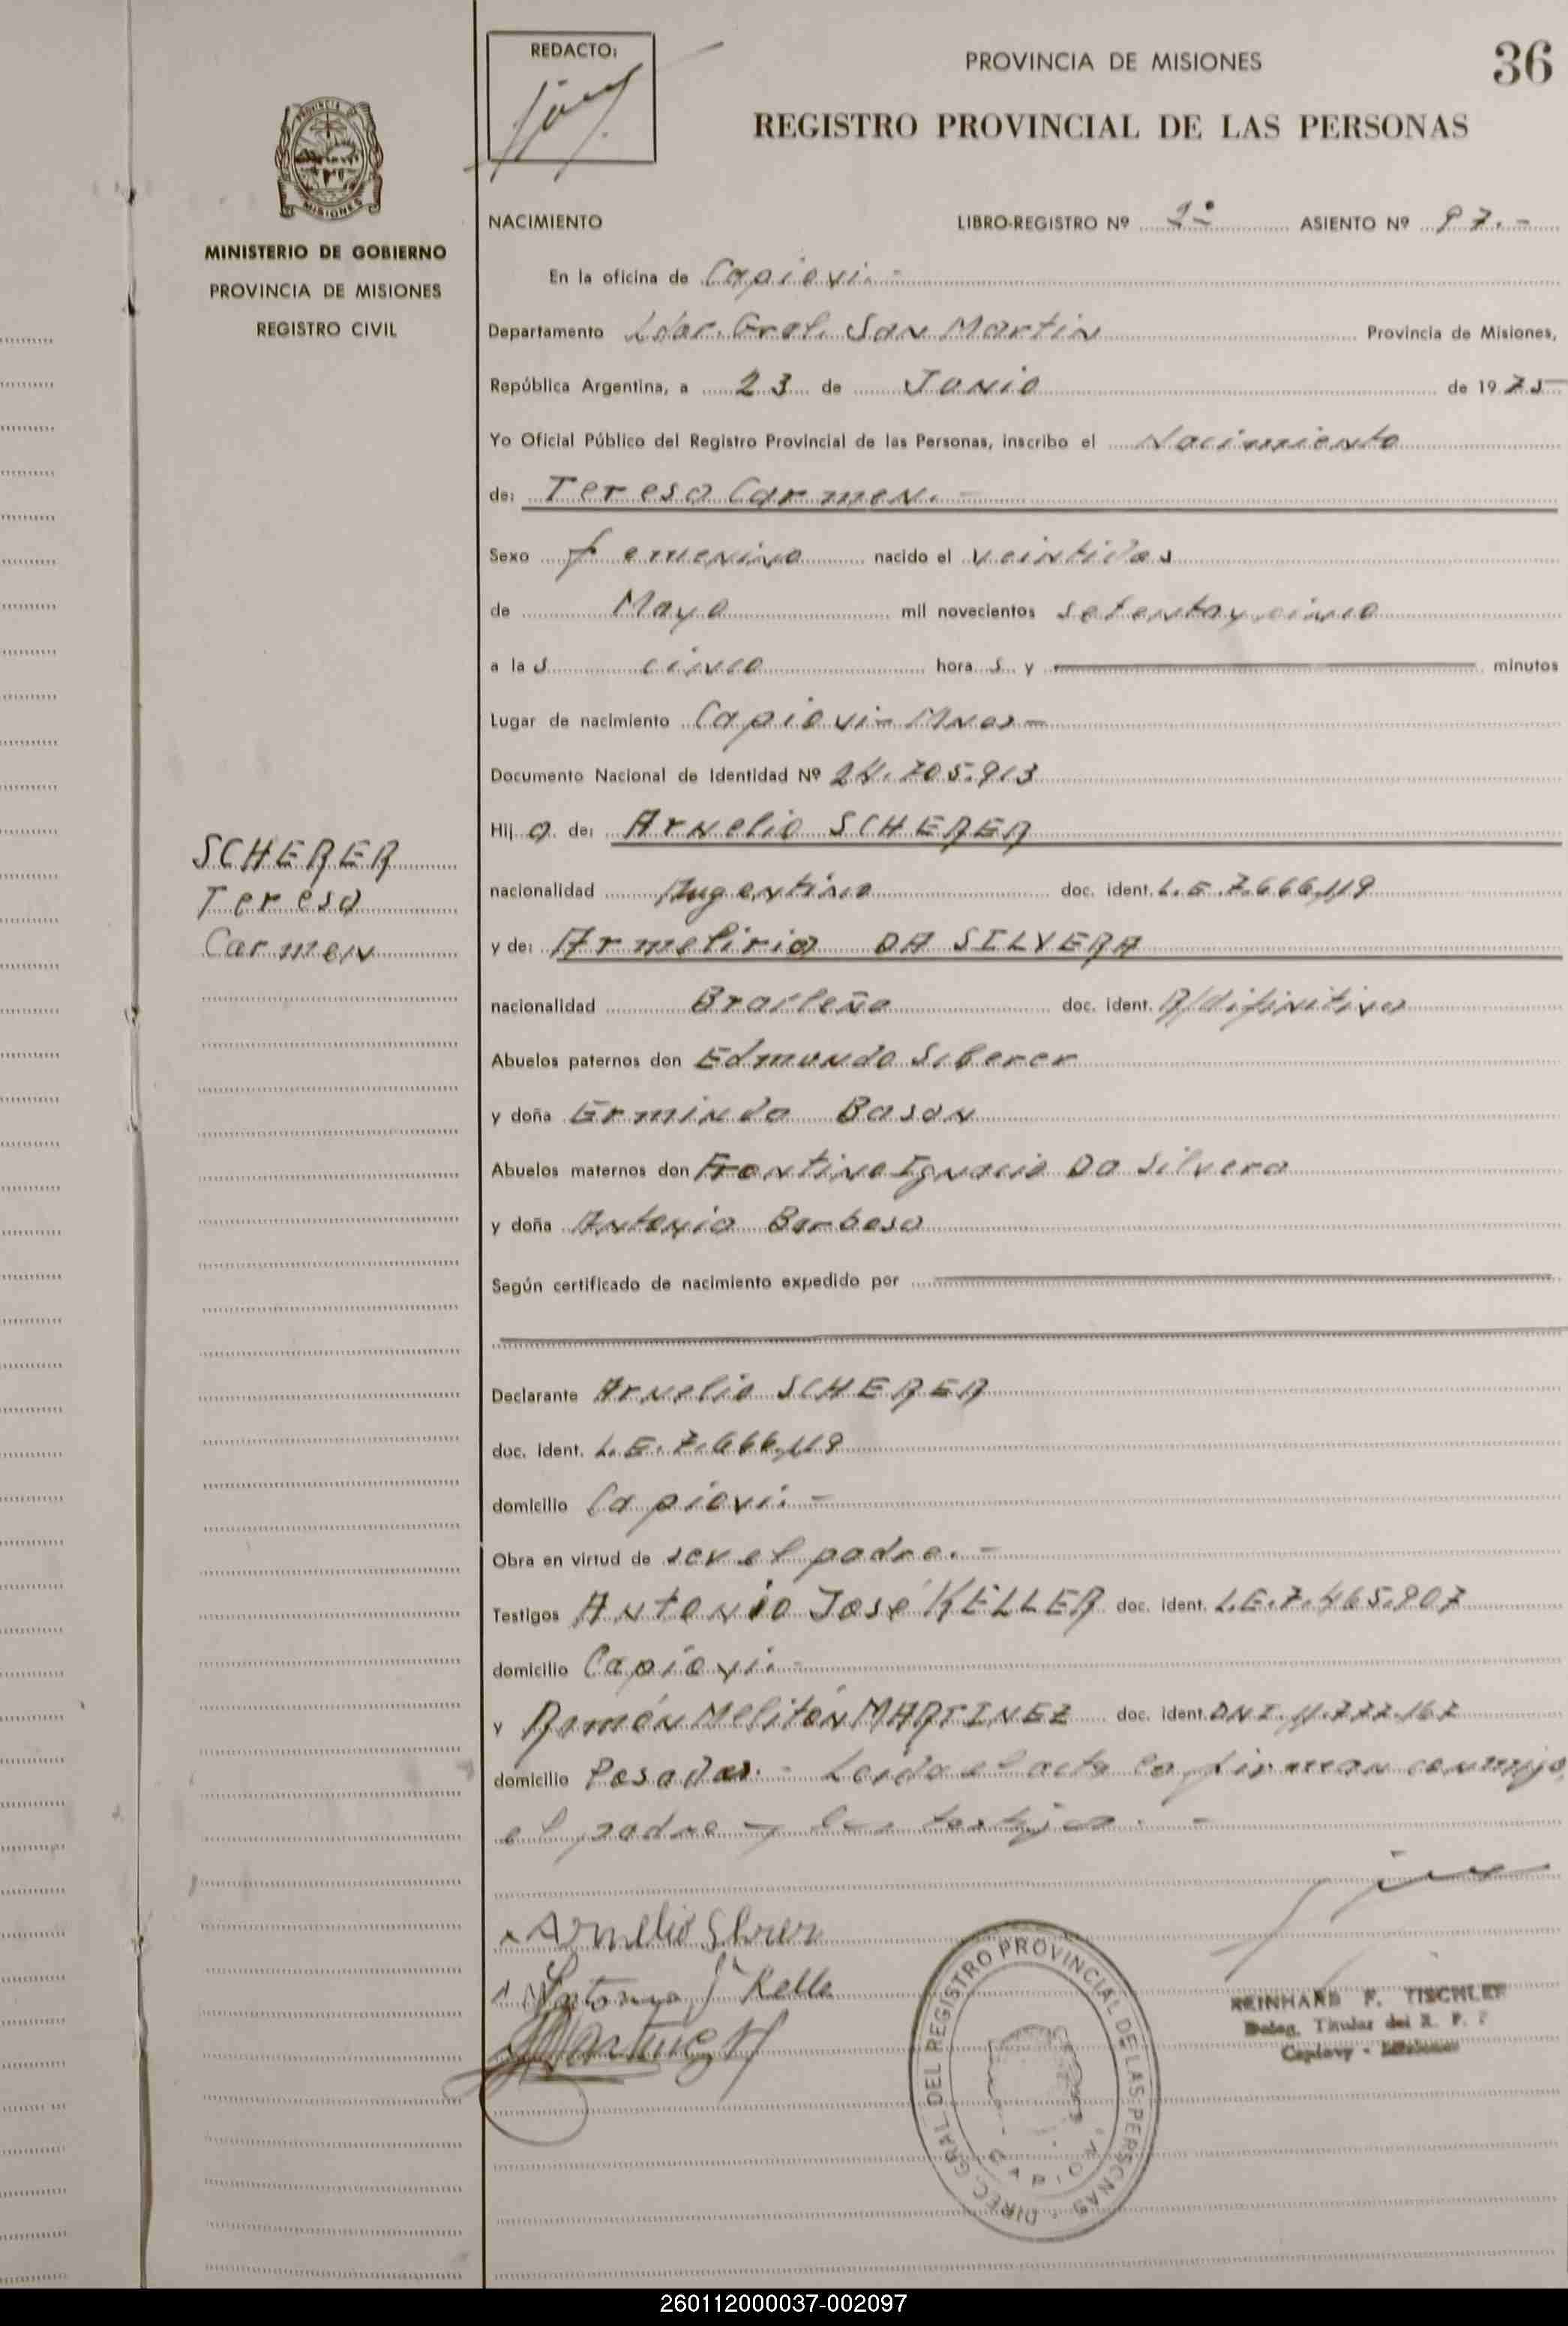 REDACTO:
PROVINCIA DE MISIONES
36
REGISTRO PROVINCIAL DE LAS PERSONAS
PROVINCIA DE
MISIONES
MINISTERIO DE GOBIERNO
PROVINCIA DE MISIONES
REGISTRO CIVIL
NACIMIENTO LIBRO-REGISTRO Nº ASIENTO Nº 97.-
En la oficina de Capiovi.-
Departamento Ldor. Gral. San Martin Provincia de Misiones,
República Argentina, a 23 de Junio de 1975
Yo Oficial Público del Registro Provincial de las Personas, inscribo el Nacimiento
de: Teresa Carmen.-
Sexo femenino nacido el veintidos
de Mayo mil novecientos setenta y cinco
a las cinco horas y minutos
Lugar de nacimiento Capiovi-Mnes-
Documento Nacional de Identidad Nº 24.705.913
SCHERER
Teresa
Carmen
Hija de: Arnelio SCHERER
nacionalidad Argentino doc. ident. L.E.7.666.119
y de: Armeliria DA SILVERA
nacionalidad Brasileña doc. ident.
Abuelos paternos don Edmundo
y doña Erminda Bason
Abuelos maternos don Ignacio Da Silvera
y doña Antonia Barbosa
Según certificado de nacimiento expedido por
Declarante Arnelio SCHERER
doc. ident. L.E. 7.666.119
domicilio Capiovi.-
Obra en virtud de ser el padre.-
Testigos Antonio José KELLER doc. ident. L.E.7.465.907
domicilio Capiovi.-
y Ramón Melitón MARTINEZ doc. ident. DNI. 11.772.167
domicilio Posadas.- Leida el acta la firman conmigo
el padre y los testigos.-
Arnelio
Antonio J Kelle
Martinez
DIREC. GRAL. DEL REGISTRO PROVINCIAL DE LAS PERSONAS
CAPIOVI
REINHARD F. TISCHLER
Deleg. Titular del R. P. P
Capiovy - Misiones
260112000037-002097